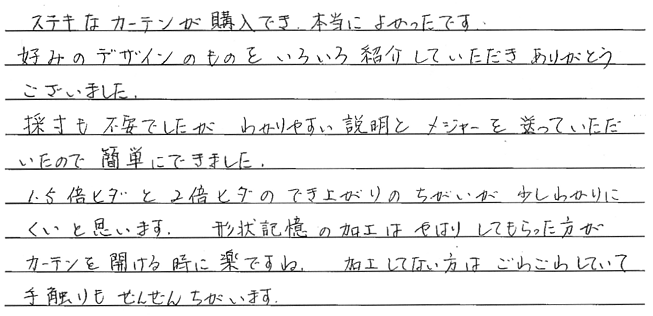 ステキなカーテンが購入でき、本当によかったです。
好みのデザインのものをいろいろ紹介していただきありがとう
ございました。
採寸も不安でしたがわかりやすい説明とメジャーを送っていただ
いたので簡単にできました。
1.5倍ヒダと2倍ヒダのでき上がりのちがいが少しわかりに
くいと思います。 形状記憶の加工はやはりしてもらった方が
カーテンを開ける時に楽ですね。 加工してない方はごわごわしていて
手触りもぜんぜんちがいます。